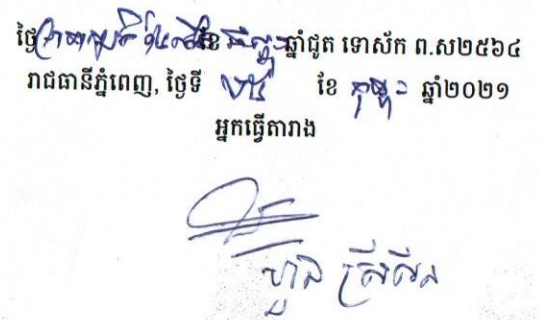 ថ្ងៃព្រហស្បតិ៍ ១៤កើត ខែ ឆ្នាំជូត ទោស័ក ព.ស២៥៦៤
រាជធានីភ្នំពេញ, ថ្ងៃទី ២៥ ខែ កុម្ភៈ ឆ្នាំ២០២១
អ្នកធ្វើតារាង
ហួន ស្រីលីន